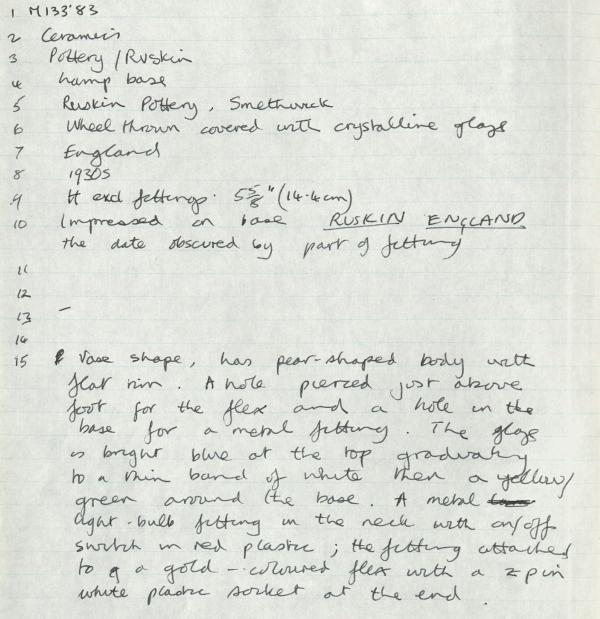 1 M133'83
2 Ceramics
3 Pottery / Ruskin
4 Lamp base
5 Ruskin Pottery, Smethwick
6 Wheel thrown covered with crystalline glaze
7 England
8 1930s
9 Ht excl fittings. 5 5/8" (14.4cm)
10 Impressed on base RUSKIN ENGLAND
the date obscured by part of fitting
11
12
13 –
14
15 Vase shape, has pear-shaped body with
flat rim. A hole pierced just above
foot for the flex and a hole in the
base for a metal fitting. The glaze
is bright blue at the top graduating
to a thin band of white then a yellow/
green around the base. A metal
light-bulb fitting in the neck with on/off
switch in red plastic; the fitting attached
to a gold-coloured flex with a 2 pin
white plastic socket at the end.